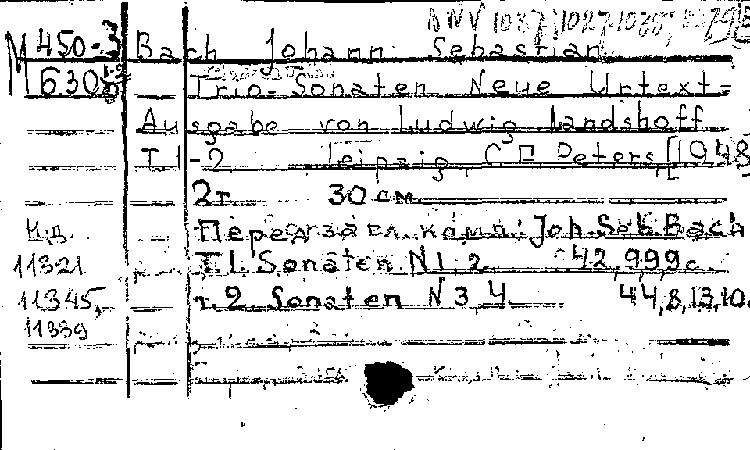 BWV 1037, 1027, 1038,
M 450-3 Bach Johann Sebastian
630 Trio-Sonaten Neue Urtext-
Ausgabe von Ludwig Landshoff
T 1-2 Leipzig, C F Peters, [1948
2т 30 см
Н.д. Перед загл. комп: Joh. Seb. Bach
11321 T.1. Sonaten N 1, 2 42, 999 с.
11345, т. 2 Sonaten N 3, 4 44, 8, 13, 10.
11339